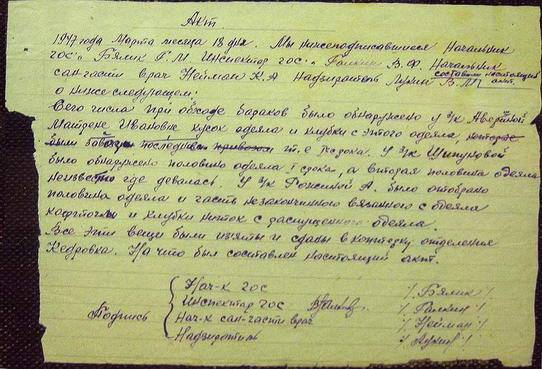 Акт
1947 года Марта месяца 18 дня. Мы нижеподписавшиеся Начальник
ЧОС: Бялик Г.М. Инспектор ЧОС: Галкин В.Ф. Начальник
сан-части врач Нейман К.А Надзиратель Лукин В.М. составили настоящий акт.
о ниже следующем:
Сего числа при обходе бараков было обнаружено у з/к
Матрене Ивановне кусок одеяла и клубки с этого одеяла, которое
были последнего т.е. срока. У з/к Шипуновой
было обнаружено половина одеяла I срока, а вторая половина одеяла
неизвестно где девалась. У з/к А. было отобрано
половина одеяла и часть незаконченного вязанного с одеяла
кофточки и клубки ниток с распущенного одеяла.
Все эти вещи были изъяты и сданы в отделения
Кедровка. На что был составлен настоящий акт.
Подпись
Нач-к ЧОС / Бялик /
Инспектор ЧОС / Галкин /
Нач-к сан-части врач / Нейман /
Надзиратель / Лукин /